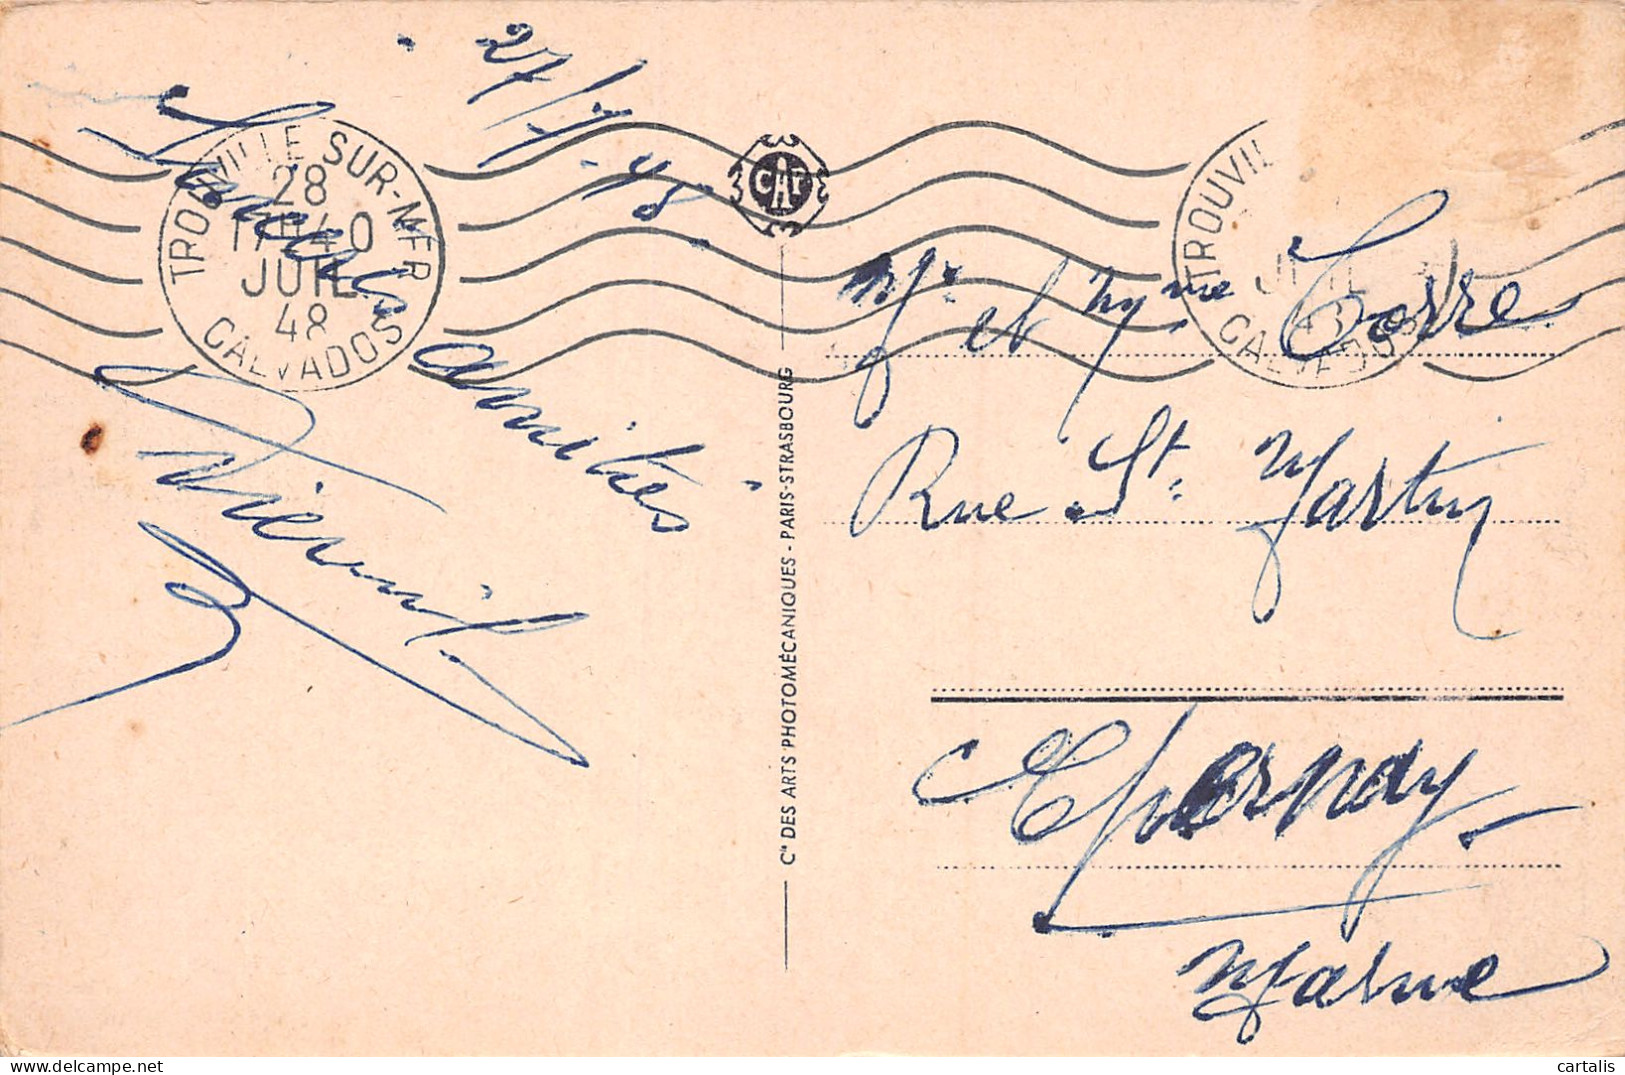 27/7-48
Sincères
amitiés
TROUVILLE SUR-MER
28
17H40
JUIL
48
CALVADOS
CAP
TROUVIL
JUIL
CALVADOS
Mr et Mme Torre
Rue St Martin
Epernay
Marne
Cie DES ARTS PHOTOMÉCANIQUES - PARIS-STRASBOURG
cartalis